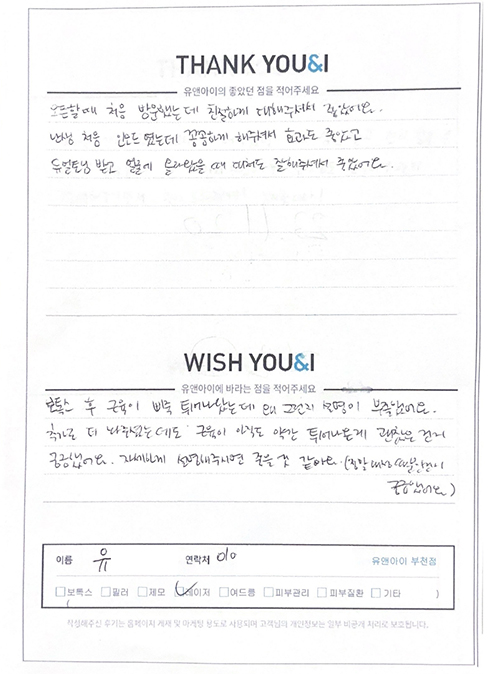 THANK YOU&I
유앤아이의 좋았던 점을 적어주세요
오픈할때 처음 방문했는데 친절하게 대해주셔서 좋았어요.
난생 처음 했는데 꼼꼼하게 해주셔서 효과도 좋았고
받고 얼굴에 올라왔을 때 대처도 잘해주셔서 좋았어요.
WISH YOU&I
유앤아이에 바라는 점을 적어주세요
보톡스 후 근육이 삐쭉 튀어나왔는데 왜 그런지 설명이 부족했어요.
추가로 더 놔주셨는데도 근육이 아직도 약간 튀어나온게 괜찮은 건지
궁금했어요. 자세하게 설명해주시면 좋을 것 같아요. (
궁금했어요)
이름 유 연락처 010 유앤아이 부천점
보톡스 필러 제모 레이저 여드름 피부관리 피부질환 기타 )
(
작성해주신 후기는 홈페이지 게재 및 마케팅 용도로 사용되며 고객님의 개인정보는 일부 비공개 처리로 보호됩니다.